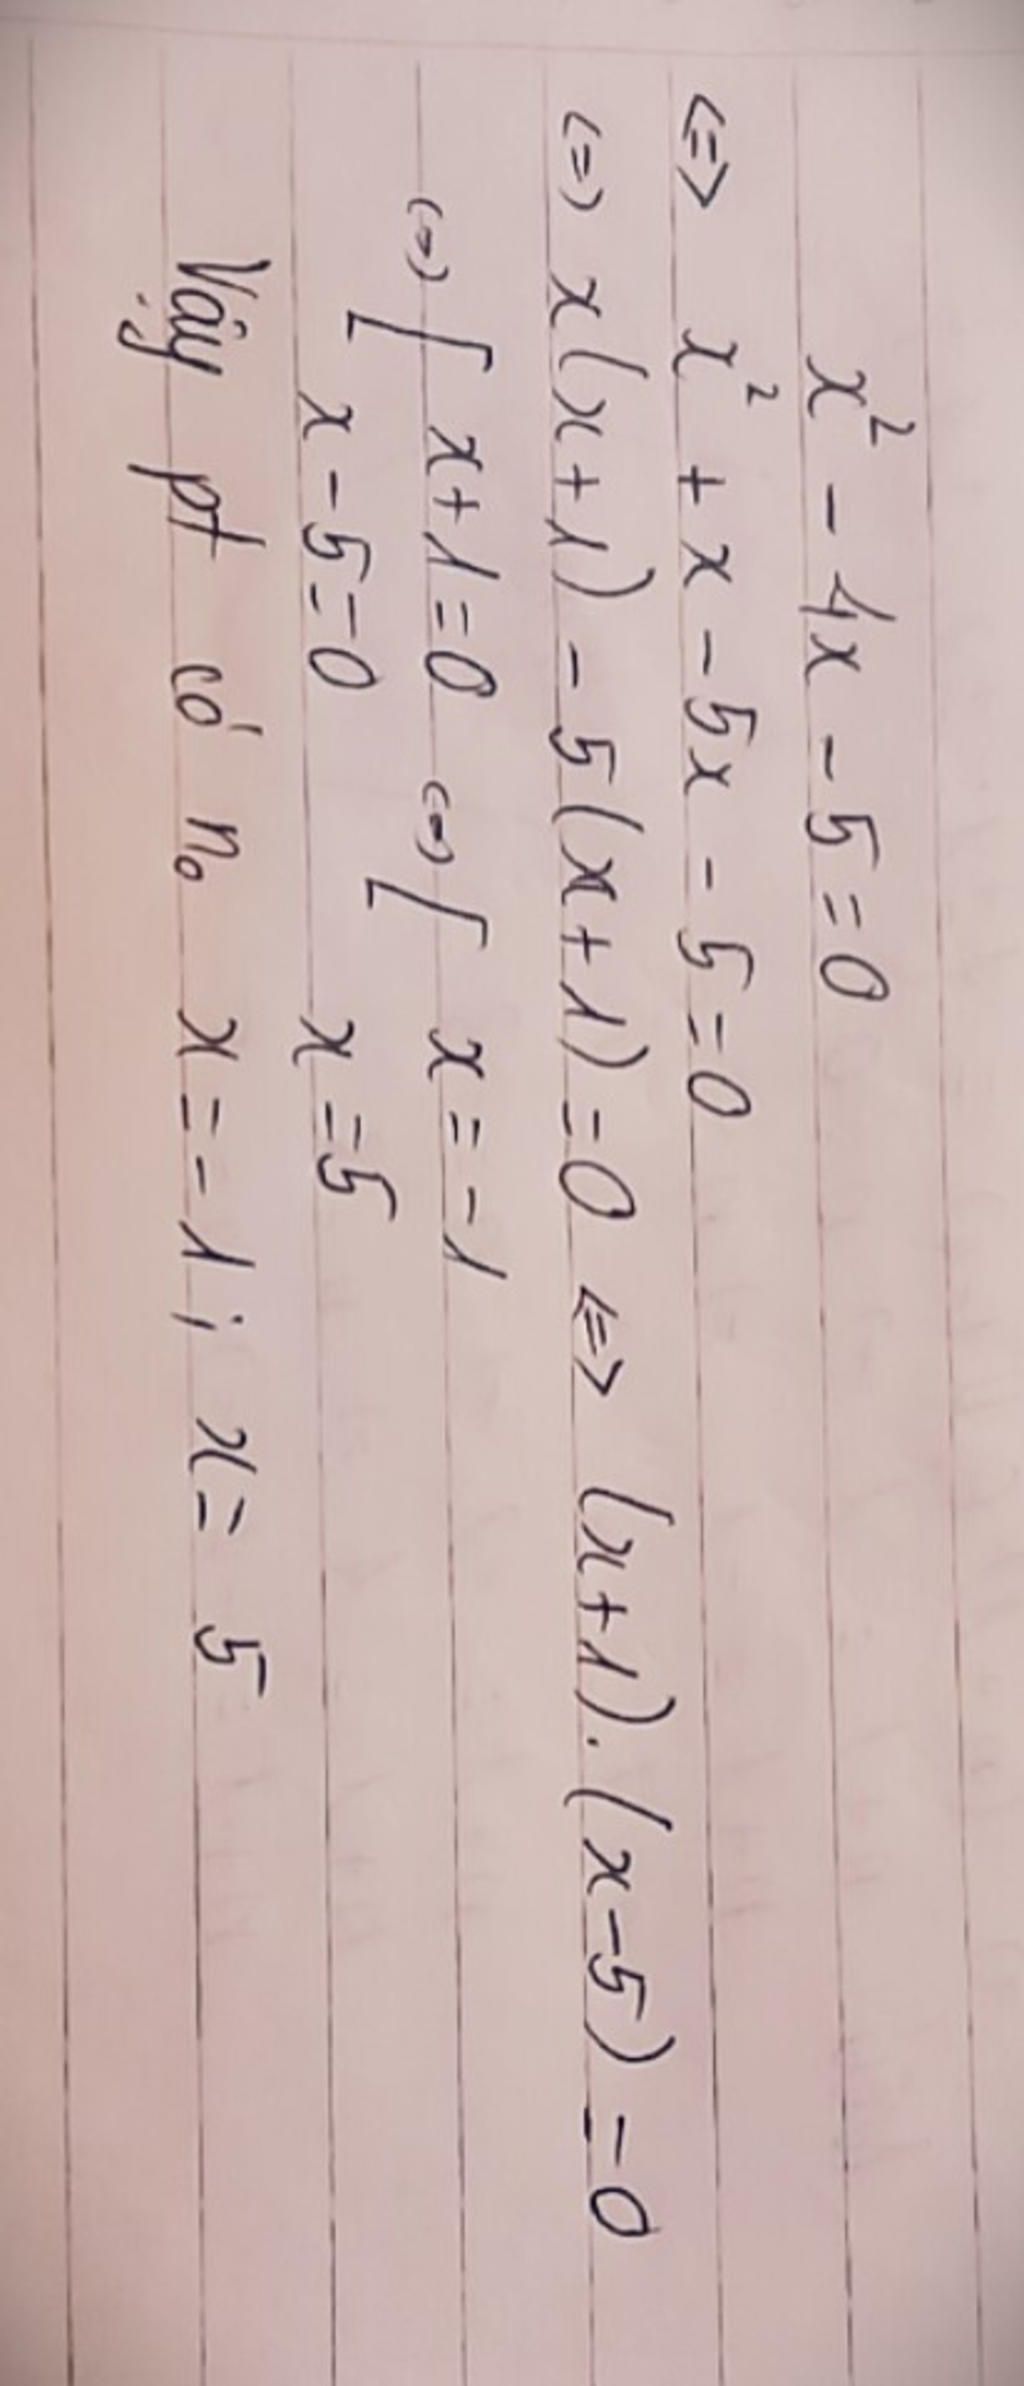 x² - 4x - 5 = 0
<=> x² + x - 5x - 5 = 0
<=> x(x+1) - 5(x+1) = 0 <=> (x+1).(x-5) = 0
<=> [ x+1=0 <=> [ x = -1
x-5=0 x = 5
Vậy pt có n₀ x = -1; x = 5